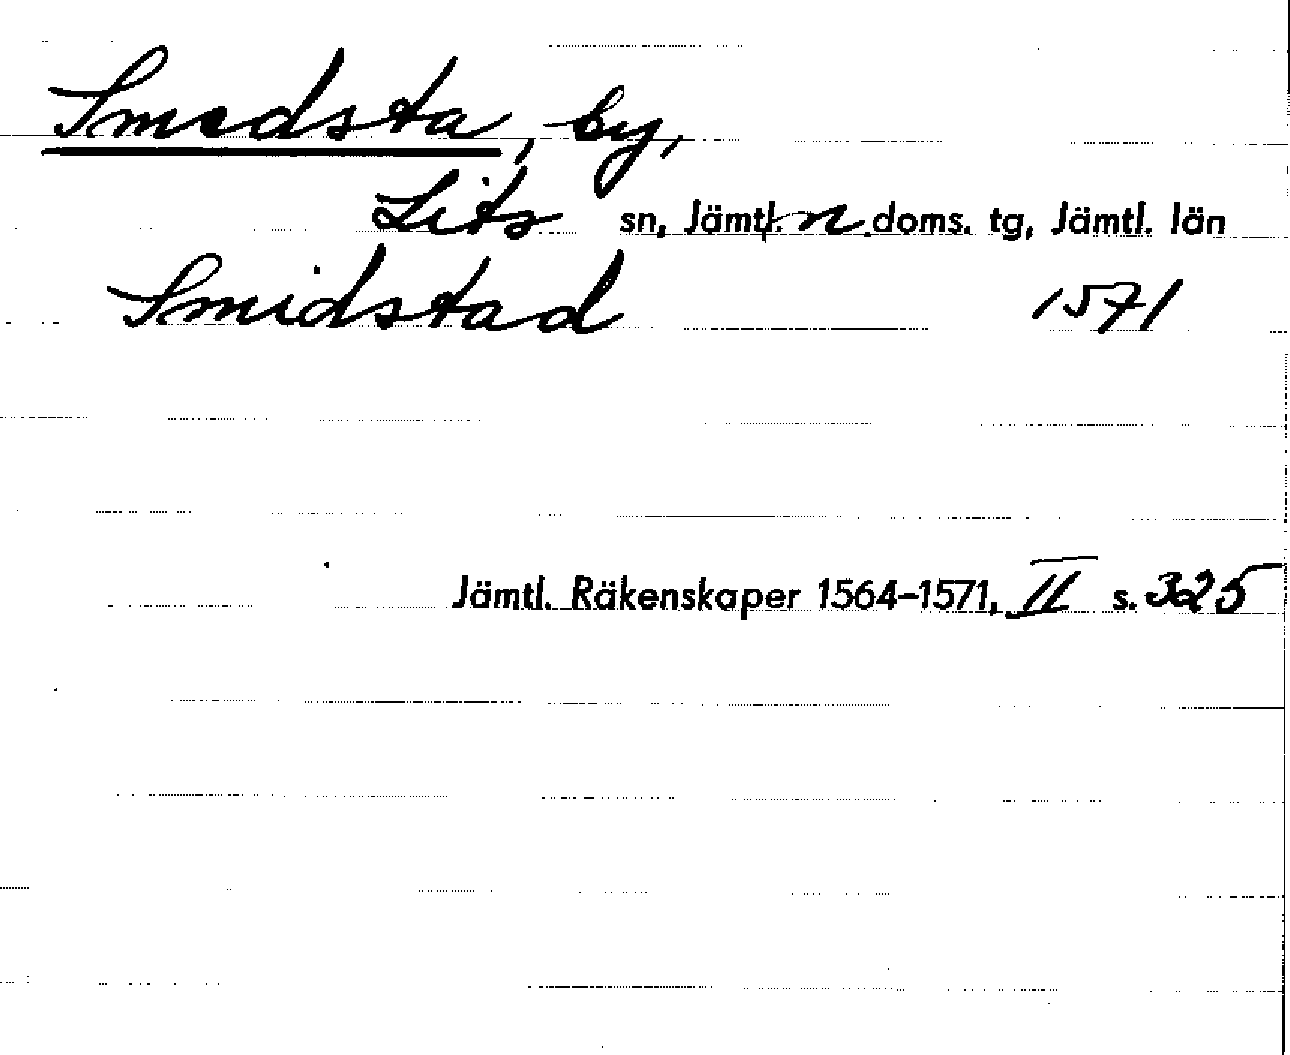 Smedsta, by,
Lits sn, Jämtl. n. doms. tg, Jämtl. län
Smidstad 1571
Jämtl. Räkenskaper 1564-1571, II s. 325